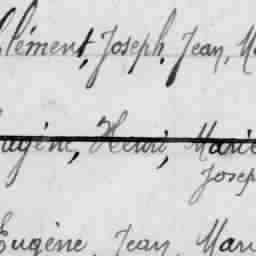 Clément, Joseph, Jean, Ma
Eugène, Henri, Marie
Josep
Eugène, Jean, Mari